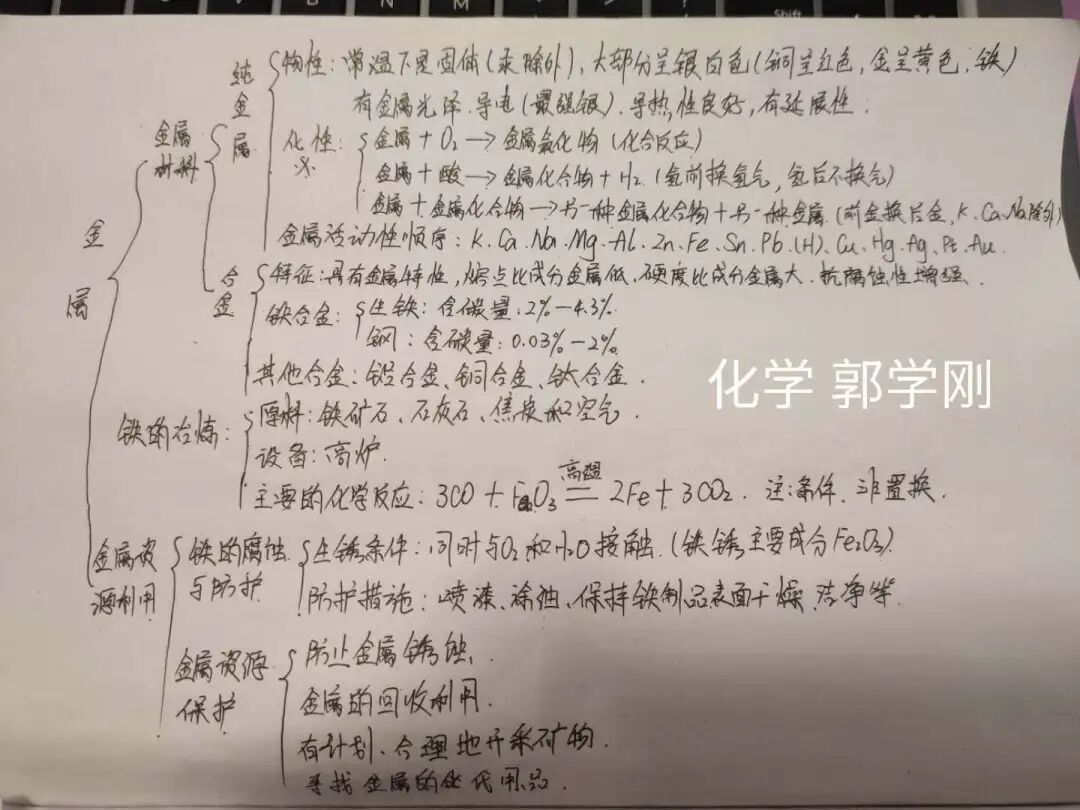 纯金属
物性：常温下是固体（汞除外），大部分呈银白色（铜呈红色，金呈黄色，铁）
有金属光泽.导电（最强银）.导热性良好，有延展性.
金属材料
化性：
※
金属+O₂→金属氧化物（化合反应）
金属+酸→金属化合物+H₂.（氢前换氢气，氢后不换气）
金属+金属化合物→另一种金属化合物+另一种金属（前金换后金，K.Ca.Na除外）
金属活动性顺序：K.Ca.Na.Mg.Al.Zn.Fe.Sn.Pb.(H).Cu.Hg.Ag.Pt.Au.
金属
合金
特征：具有金属特性，熔点比成分金属低、硬度比成分金属大.抗腐蚀性增强.
铁合金：
生铁：含碳量：2%-4.3%.
钢：含碳量：0.03%-2%.
其他合金：铝合金、铜合金、钛合金.
化学 郭学刚
铁的冶炼：
原料：铁矿石、石灰石、焦炭和空气.
设备：高炉.
主要的化学反应：3CO+Fe₂O₃ 高温 = 2Fe+3CO₂. 注:条件、非置换.
金属资源利用
铁的腐蚀与防护
生锈条件：同时与O₂和H₂O接触.（铁锈主要成分Fe₂O₃）.
防护措施：喷漆、涂油、保持铁制品表面干燥、洁净等.
金属资源保护
防止金属锈蚀、
金属的回收利用.
有计划、合理地开采矿物.
寻找金属的代用品.